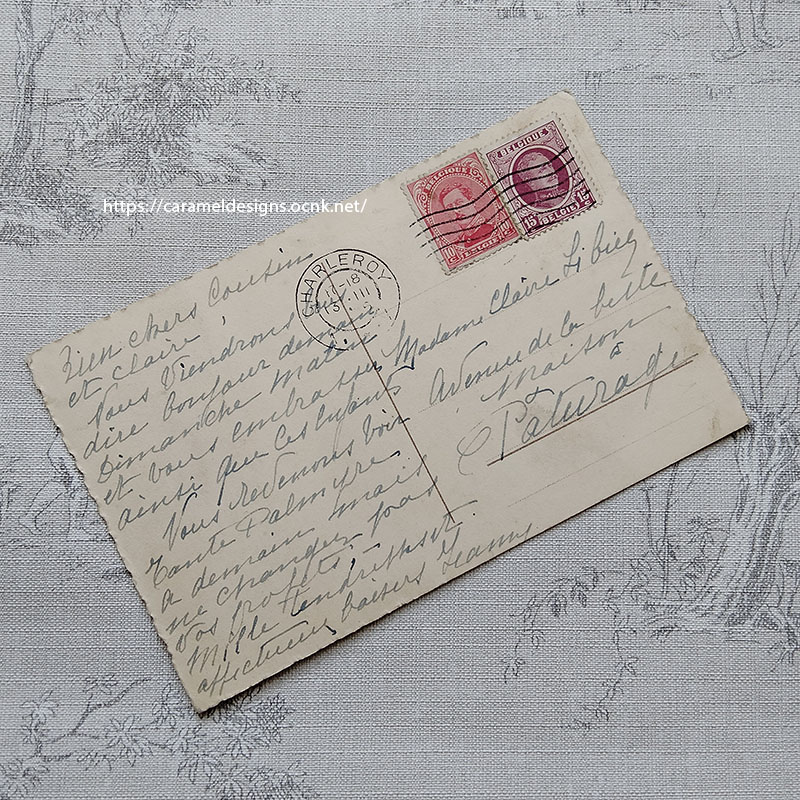 https://carameldesigns.ocnk.net/
BELGIQUE
BELGIË
BELGIQUE
15 BELGIË 15
CHARLEROY
18
III
Bien chers Cousin
et Claire,
Nous viendrons vous
dire bonjour demain
Dimanche matin
et vous embrasser
ainsi que ces enfants
Nous redenons voir
tante Palmyre
a demain mais
ne changez pas
vos projets,
Mille tendresses et
affectueux baisers Jeanne
Madame Claire
Avenue de la belle
Maison
à
Paturage